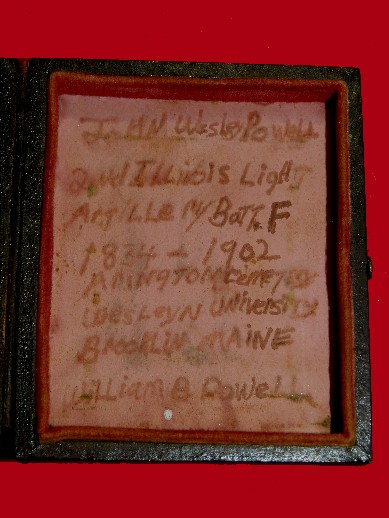 JOHN Wesley Powell
2nd ILLiNOiS LighT
ARTiLLERY BaTT. F
1834 - 1902
ARlNGTON CEMETERY
WESLEYN UNIVERSITY
BROOKLIN MAINE
WILLIAM B POWELL